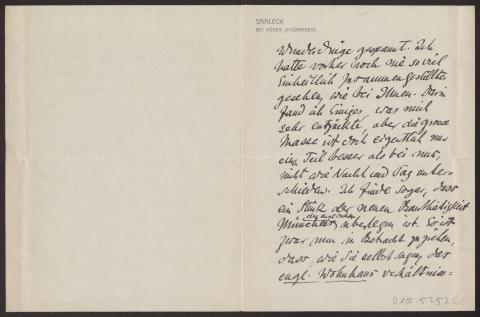 SAALECK
BEI KÖSEN (THÜRINGEN)
Wunderdinge gespannt. Ich
hatte vorher noch nie so viel
Einheitlich Zusammengestelltes
gesehen, wie bei Ihnen. Darin
fand ich Einiges, was mich
sehr entzückte, aber die grosse
Masse ist doch eigentlich nur
ein Teil besser als bei uns,
nicht wie Nacht und Tag unter-
schieden. Ich finde sogar, dass
ein Stück der neuen Bauthätigkeit
Münchens überlegen ist. Es ist
zwar nun in Betracht zu ziehen,
dass, wie Sie selbst sagen, das
engl. Wohnhaus verhältniss=
D 102-5752 c